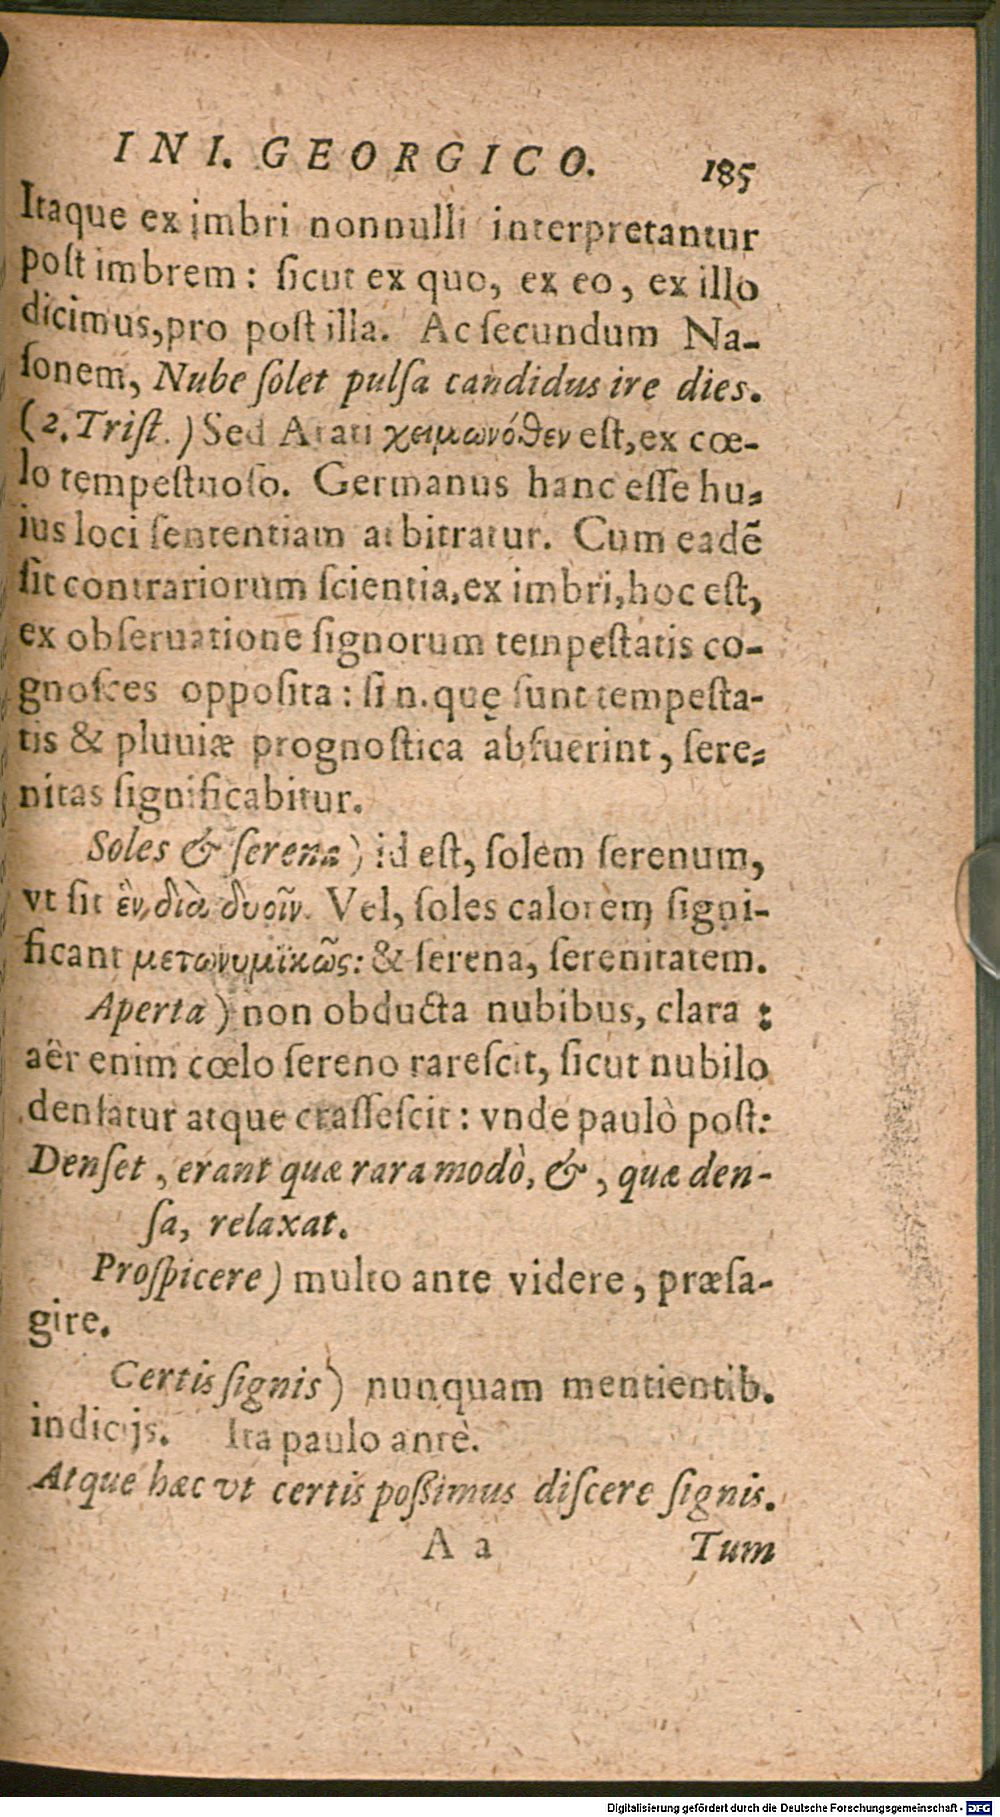 IN I. GEORGICO. 185
Itaque ex imbri nonnulli interpretantur
poſt imbrem: ſicut ex quo, ex eo, ex illo
dicimus, pro poſt illa. Ac ſecundum Na-
ſonem, Nube ſolet pulſa candidus ire dies.
(2. Triſt.) Sed Arati χειμωνόθεν eſt, ex cœ-
lo tempeſtuoſo. Germanus hanc eſſe hu-
ius loci ſententiam arbitratur. Cum eadē
ſit contrariorum ſcientia, ex imbri, hoc eſt,
ex obſeruatione ſignorum tempeſtatis co-
gnoſces oppoſita: ſi n. quę ſunt tempeſta-
tis & pluuiæ prognoſtica abfuerint, ſere-
nitas ſignificabitur.
Soles & ſerena) id eſt, ſolem ſerenum,
vt ſit ἓν διὰ δυοῖν. Vel, ſoles calorem ſigni-
ficant μετωνυμϊκῶς: & ſerena, ſerenitatem.
Aperta) non obducta nubibus, clara:
aër enim cœlo ſereno rareſcit, ſicut nubilo
denſatur atque craſſeſcit: vnde paulò poſt:
Denſet, erant quæ rara modò, &, quæ den-
ſa, relaxat.
Proſpicere) multo ante videre, præſa-
gire.
Certis ſignis) nunquam mentientib.
indicijs. Ita paulo antè.
Atque hæc vt certis poßimus diſcere ſignis.
A a Tum
Digitalisierung gefördert durch die Deutsche Forschungsgemeinschaft - DFG